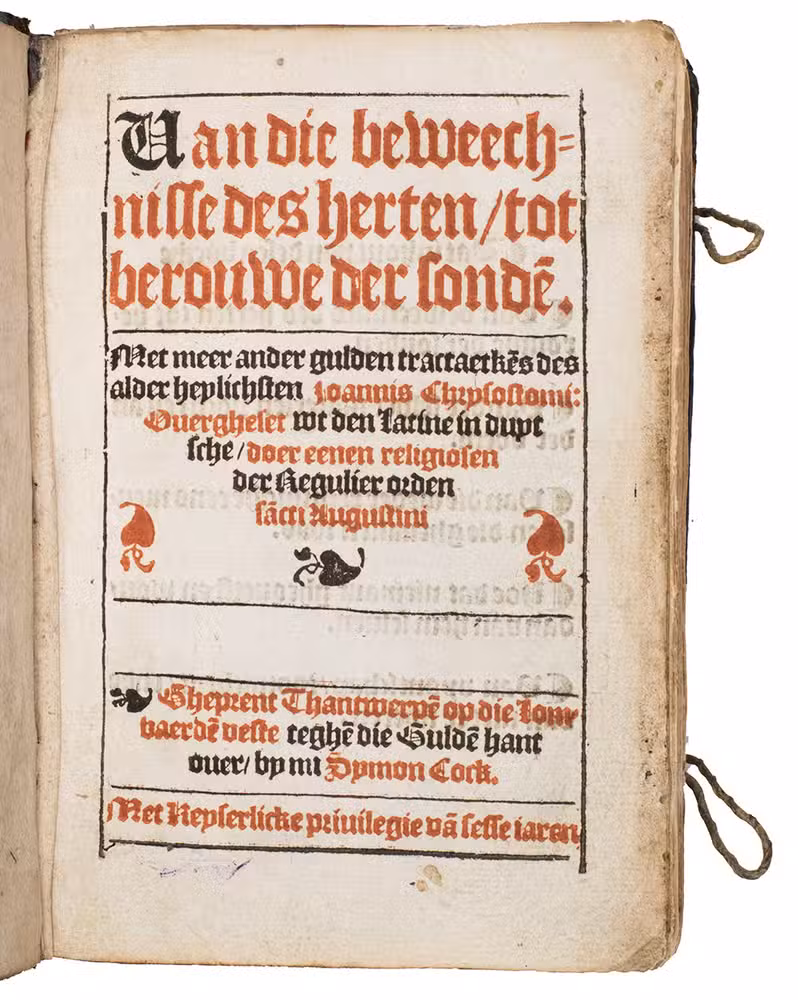 Uan die beweech=
nisse des herten/tot
berouwe der sondē.
Met meer ander gulden tractaetkēs des
alder heylichsten Joannis Chrysostomi:
Ouergheset wt den Latine in duyt
sche/doer eenen religiosen
der Regulier orden
sācti Augustini
Gheprent Thantwerpē op die Lom
vaerdē veste teghē die Guldē hant
ouer/by mi Symon Cock.
Met Keyserlicke priuilegie vā sesse iaren